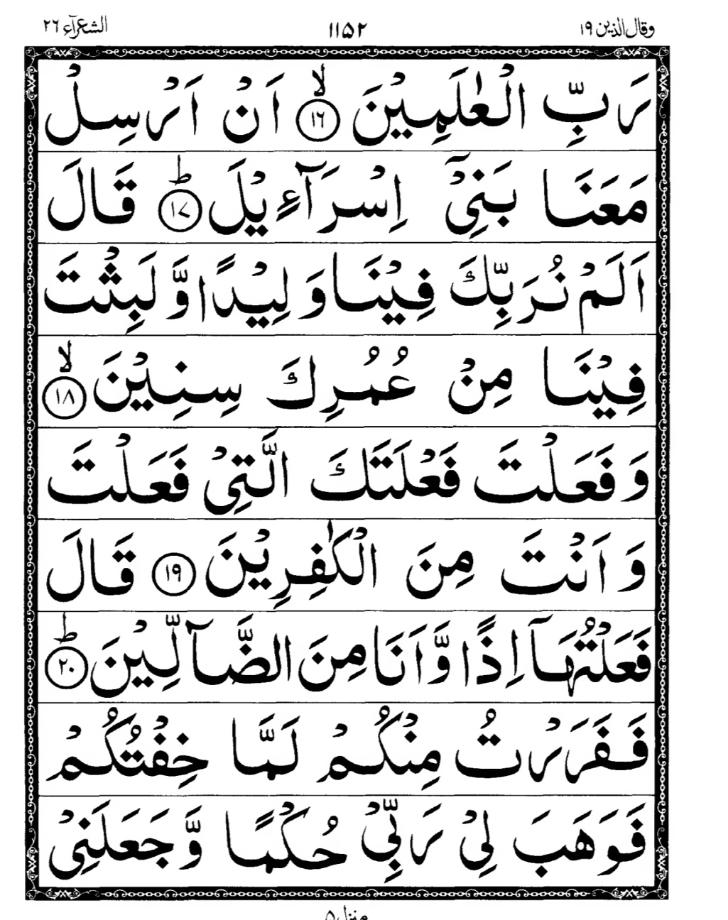 وقال الذين ١٩ ١١٥٢ الشعرآء ٢٦
رَبِّ الْعٰلَمِيْنَ ۙ﴿١٦﴾ اَنْ اَرْسِلْ
مَعَنَا بَنِيْٓ اِسْرَآءِيْلَ ؕ﴿١٧﴾ قَالَ
اَلَمْ نُرَبِّكَ فِيْنَا وَلِيْدًا وَّلَبِثْتَ
فِيْنَا مِنْ عُمُرِكَ سِنِيْنَ ۙ﴿١٨﴾
وَفَعَلْتَ فَعْلَتَكَ الَّتِيْ فَعَلْتَ
وَاَنْتَ مِنَ الْكٰفِرِيْنَ ﴿١٩﴾ قَالَ
فَعَلْتُهَاۤ اِذًا وَّاَنَا مِنَ الضَّآلِّيْنَ ؕ﴿٢٠﴾
فَفَرَرْتُ مِنْكُمْ لَمَّا خِفْتُكُمْ
فَوَهَبَ لِيْ رَبِّيْ حُكْمًا وَّجَعَلَنِيْ
منزل ٥